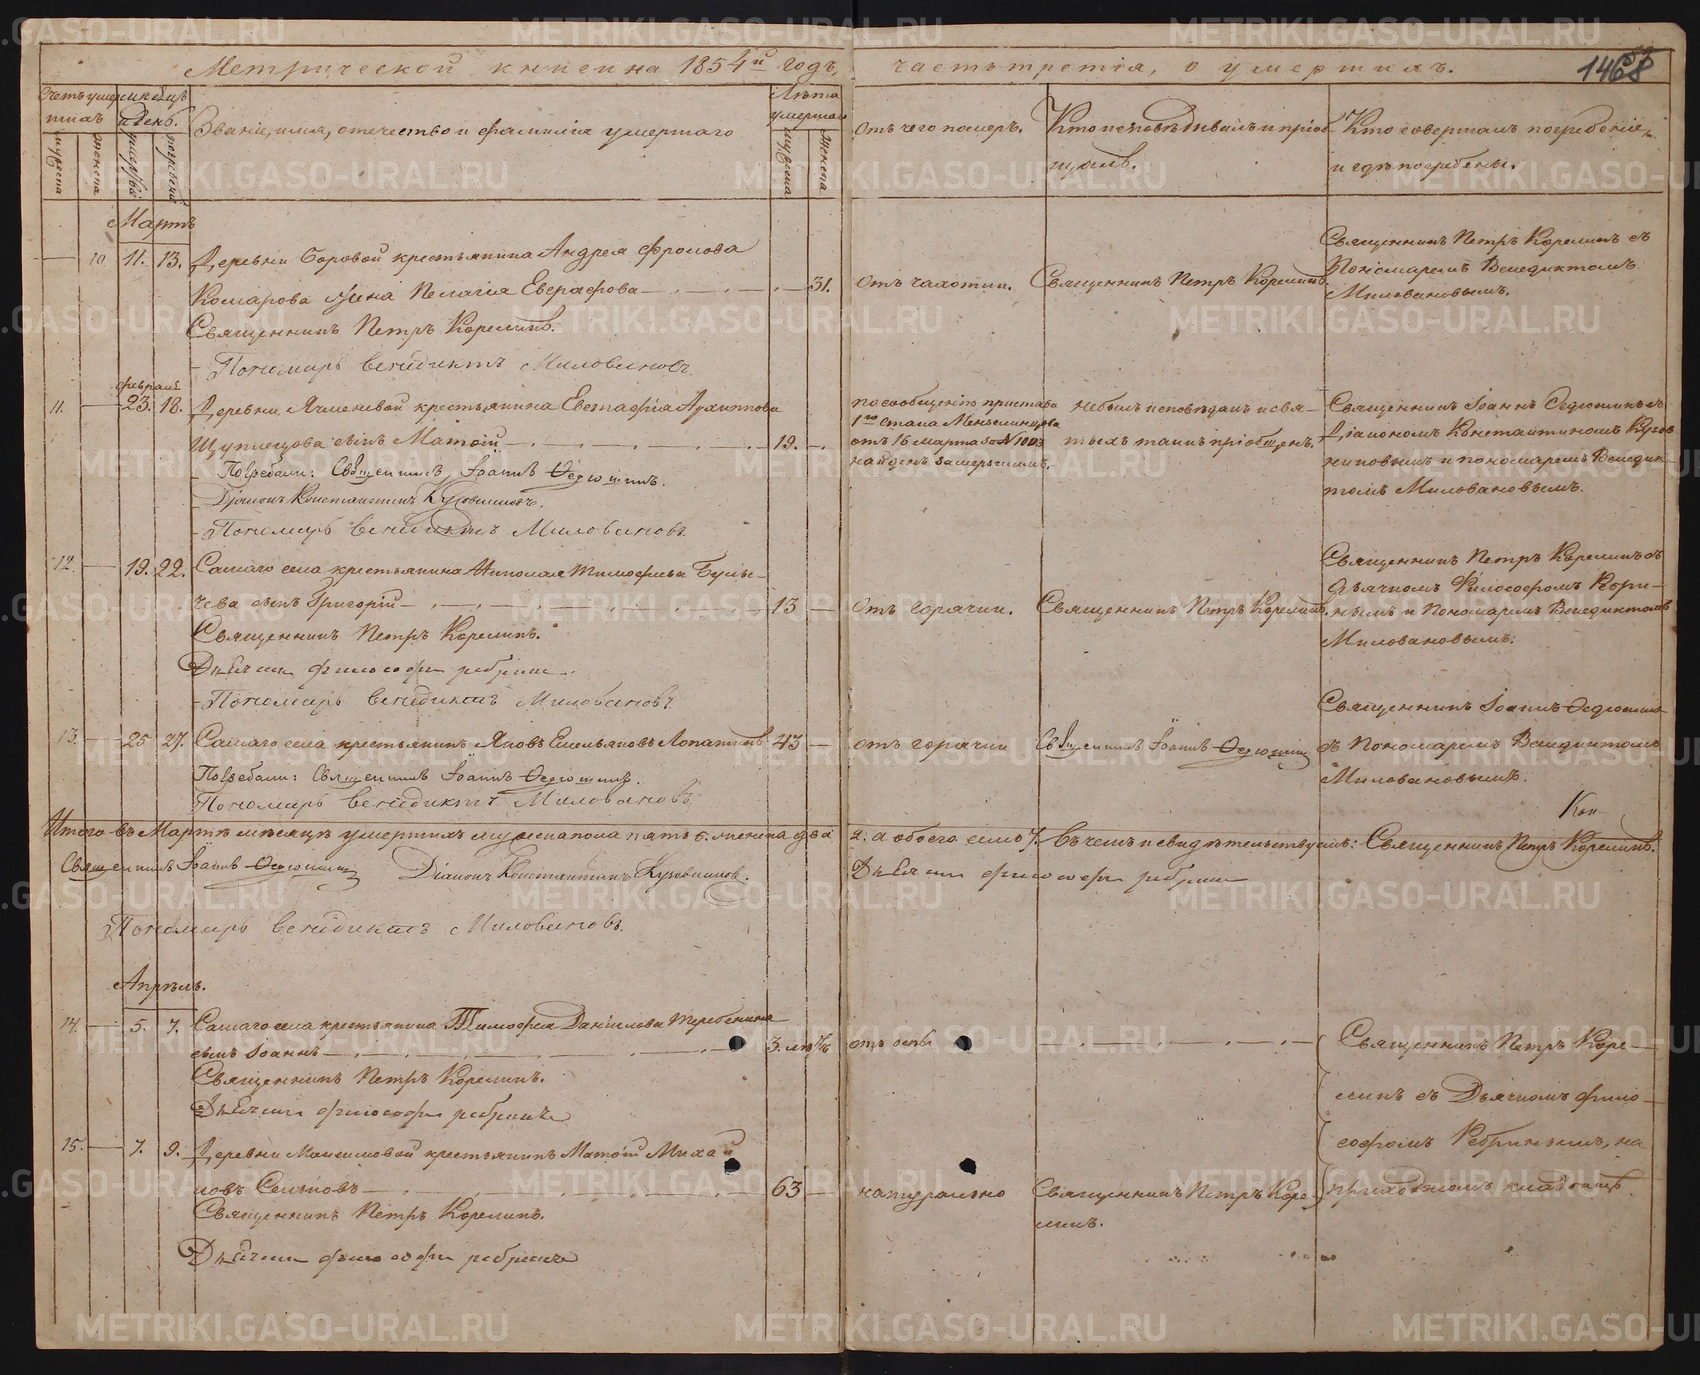 Метрической книги на 1854й годъ,
часть третія, о умершихъ.
146
Счетъ умер
шихъ
мужеска
женска
Мѣсяцъ
и день.
смерти
погребенія
Званіе, имя, отечество и фамилія умершаго
Лѣта
умершаго
мужеска
женска
Отъ чего померъ.
Кто исповѣдывалъ и пріоб
щалъ.
Кто совершалъ погребеніе,
и гдѣ погребены.
Мартъ
10 11. 13. Деревни Боровой крестьянина Андрея Фролова
Комарова жена Пелагія Евграфова 31.
Священникъ Петръ Корелинъ.
Пономарь Венидиктъ Миловановъ.
Отъ чахотки.
Священникъ Петръ Корелинъ
Священникъ Петръ Корелинъ съ
Пономаремъ Венедиктомъ
Миловановымъ.
февраля
11. 23. 18. Деревни Ячменевой крестьянина Евстафія Архиппова
Щуплецова сынъ Матѳій 19.
Погребали: Священникъ Іоаннъ Ѳедюшинъ.
Діаконъ Константинъ
Пономарь Венидиктъ Миловановъ
по сообщенію пристава
1го стана
отъ 16 марта за № 1003
найденъ замерзшимъ.
небылъ исповѣданъ и свя
тыхъ таинъ пріобщенъ.
Священникъ Іоаннъ Ѳедюшинъ съ
Діакономъ Константиномъ
и пономаремъ Венедик
томъ Миловановымъ.
12. 19. 22. Самаго села крестьянина Николая Тимофеева Булы
чева сынъ Григорій 13
Священникъ Петръ Корелинъ.
Дьячекъ Философъ Ребринъ
Пономарь Венидиктъ Миловановъ
Отъ горячки.
Священникъ Петръ Корелинъ.
Священникъ Петръ Корелинъ съ
Дьячкомъ Философомъ
и Пономаремъ Венедиктомъ
Миловановымъ.
13. 25 27. Самаго села крестьянинъ Яковъ Емельяновъ Лопатинъ 43
Погребали: Священникъ Іоаннъ Ѳедюшинъ.
Пономарь Венидиктъ Миловановъ
отъ горячки
Священникъ Іоаннъ Ѳедюшинъ
Священникъ Іоаннъ Ѳедюшинъ
съ Пономаремъ Венедиктомъ
Миловановымъ.
Итого въ Мартѣ мѣсяцѣ умершихъ мужеска пола пять 5. женска два
2. а обоего семь 7. Въ чемъ и свидѣтельствуемъ: Священникъ Петръ Корелинъ.
Священникъ Іоаннъ Ѳедюшинъ Діаконъ Константинъ
Дьячекъ Философъ Ребринъ
Пономарь Венидиктъ Миловановъ.
Апрѣль.
14. 5. 7. Самаго села крестьянина Тимофея Данилова Теребенина
сынъ Іоаннъ
Священникъ Петръ Корелинъ.
Дьячекъ Философъ Ребринъ
отъ оспы
Священникъ Петръ Коре
линъ съ Дьячкомъ Фило
софомъ Ребринымъ, на
приходскомъ кладбищѣ.
15. 7. 9. Деревни Максимовой крестьянинъ Матѳій Михай
ловъ 63
Священникъ Петръ Корелинъ.
Дьячекъ Философъ Ребринъ
натурально
Священникъ Петръ Коре
линъ.
METRIKI.GASO-URAL.RU